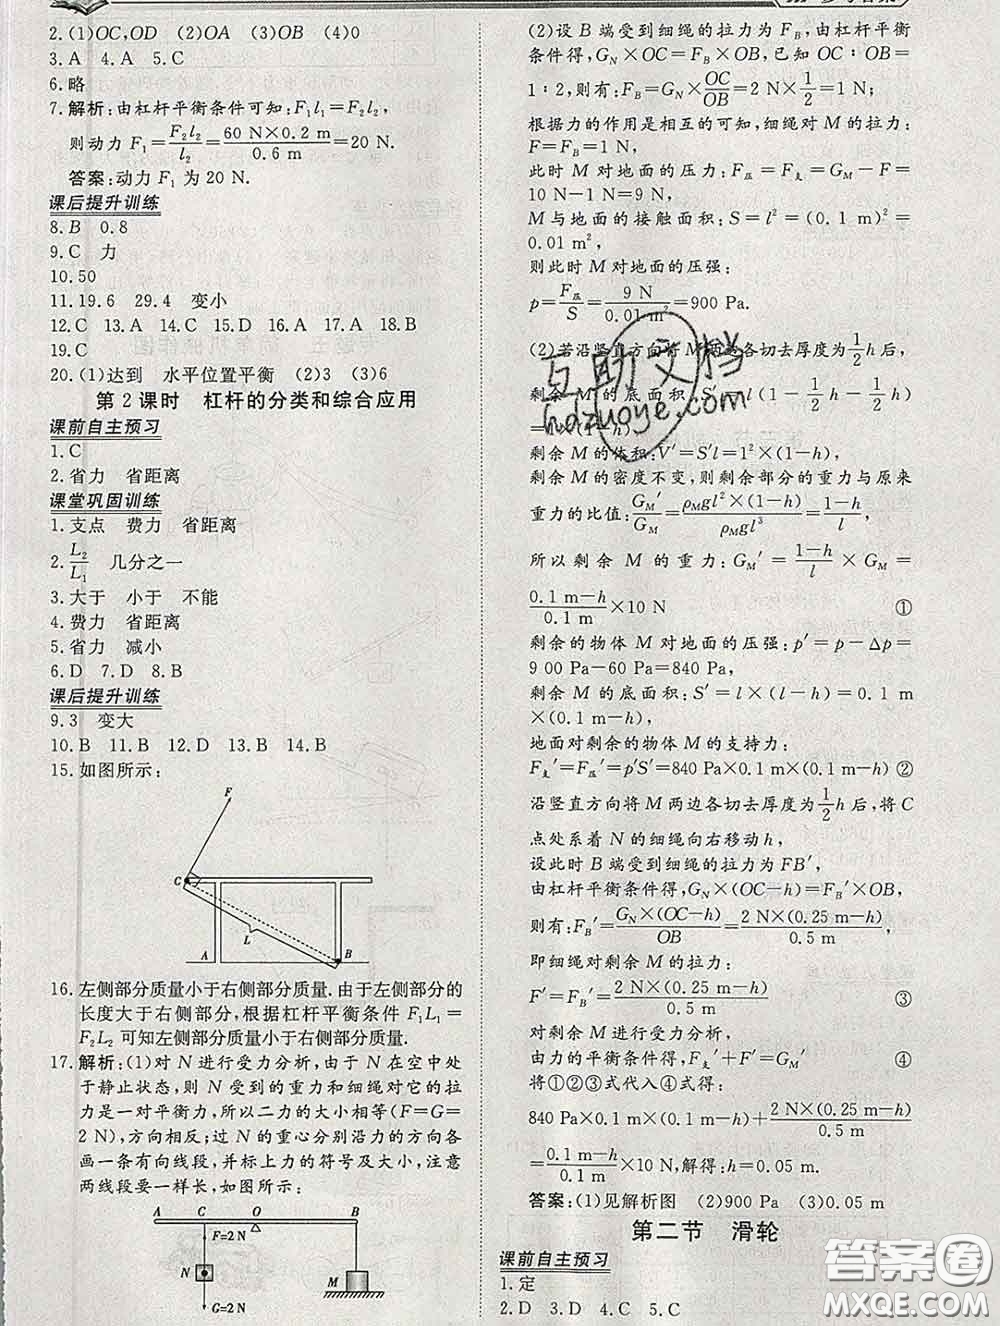 参考答案
2.(1)OC,OD (2)OA (3)OB (4)0
3.A 4.A 5.C
6.略
7.解析:由杠杆平衡条件可知:F₁l₁=F₂l₂,
则动力 F₁=F₂l₂/l₂=60 N×0.2 m/0.6 m=20 N.
答案:动力 F₁ 为 20 N.
课后提升训练
8.B 0.8
9.C 力
10.50
11.19.6 29.4 变小
12.C 13.A 14.C 15.D 16.A 17.A 18.B
19.C
20.(1)达到 水平位置平衡 (2)3 (3)6
第 2 课时 杠杆的分类和综合应用
课前自主预习
1.C
2.省力 省距离
课堂巩固训练
1.支点 费力 省距离
2.L₂/L₁ 几分之一
3.大于 小于 不能
4.费力 省距离
5.省力 减小
6.D 7.D 8.B
课后提升训练
9.3 变大
10.B 11.B 12.D 13.B 14.B
15.如图所示:
F
C
L
A
B
16.左侧部分质量小于右侧部分质量.由于左侧部分的
长度大于右侧部分,根据杠杆平衡条件 F₁L₁=
F₂L₂ 可知左侧部分质量小于右侧部分质量.
17.解析:(1)对 N 进行受力分析,由于 N 在空中处
于静止状态,则 N 受到的重力和细绳对它的拉
力是一对平衡力,所以二力的大小相等(F=G=
2 N),方向相反;过 N 的重心分别沿力的方向各
画一条有向线段,并标上力的符号及大小,注意
两线段要一样长,如图所示:
A C O B
F=2 N
N
M
G=2 N
(2)设 B 端受到细绳的拉力为 F_B,由杠杆平衡
条件得,G_N×OC=F_B×OB,已知 OC∶OB=
1∶2,则有:F_B=G_N×OC/OB=2 N×1/2=1 N;
根据力的作用是相互的可知,细绳对 M 的拉力:
F=F_B=1 N,
此时 M 对地面的压力:F压=F支=G_M−F=
10 N−1 N=9 N,
M 与地面的接触面积:S=l²=(0.1 m)²=
0.01 m²,
则此时 M 对地面的压强:
p=F压/S=9 N/0.01 m²=900 Pa.
(2)若沿竖直方向将 M 两边各切去厚度为1/2h 后,
剩余 M 的底面积:S′=l(l−1/2h−1/2h)
=l×(l−h)
剩余 M 的体积:V′=S′l=l²×(l−h)
剩余 M 的密度不变,则剩余部分的重力与原来
重力的比值:G_M′/G_M=ρ_Mgl²×(l−h)/ρ_Mgl³=l−h/l,
所以剩余 M 的重力:G_M′=l−h/l×G_M=
0.1 m−h/0.1 m×10 N ①
剩余的物体 M 对地面的压强:p′=p−Δp=
900 Pa−60 Pa=840 Pa,
剩余 M 的底面积:S′=l×(l−h)=0.1 m
×(0.1 m−h),
地面对剩余的物体 M 的支持力:
F支′=F压′=p′S′=840 Pa×0.1 m×(0.1 m−h) ②
沿竖直方向将 M 两边各切去厚度为1/2h 后,将 C
点处系着 N 的细绳向右移动 h,
设此时 B 端受到细绳的拉力为 FB′,
由杠杆平衡条件得,G_N×(OC−h)=F_B′×OB,
则有:F_B′=G_N×(OC−h)/OB=2 N×(0.25 m−h)/0.5 m,
即细绳对剩余 M 的拉力:
F′=F_B′=2 N×(0.25 m−h)/0.5 m ③
对剩余 M 进行受力分析,
由力的平衡条件得,F支′+F′=G_M′ ④
将①②③式代入④式得:
840 Pa×0.1 m×(0.1 m−h)+2 N×(0.25 m−h)/0.5 m
=0.1 m−h/0.1 m×10 N,解得:h=0.05 m.
答案:(1)见解析图 (2)900 Pa (3)0.05 m
第二节 滑轮
课前自主预习
1.定
2.D 3.D 4.C 5.C
互助文档
hdzuoye.com
答案圈
MXQE.COM